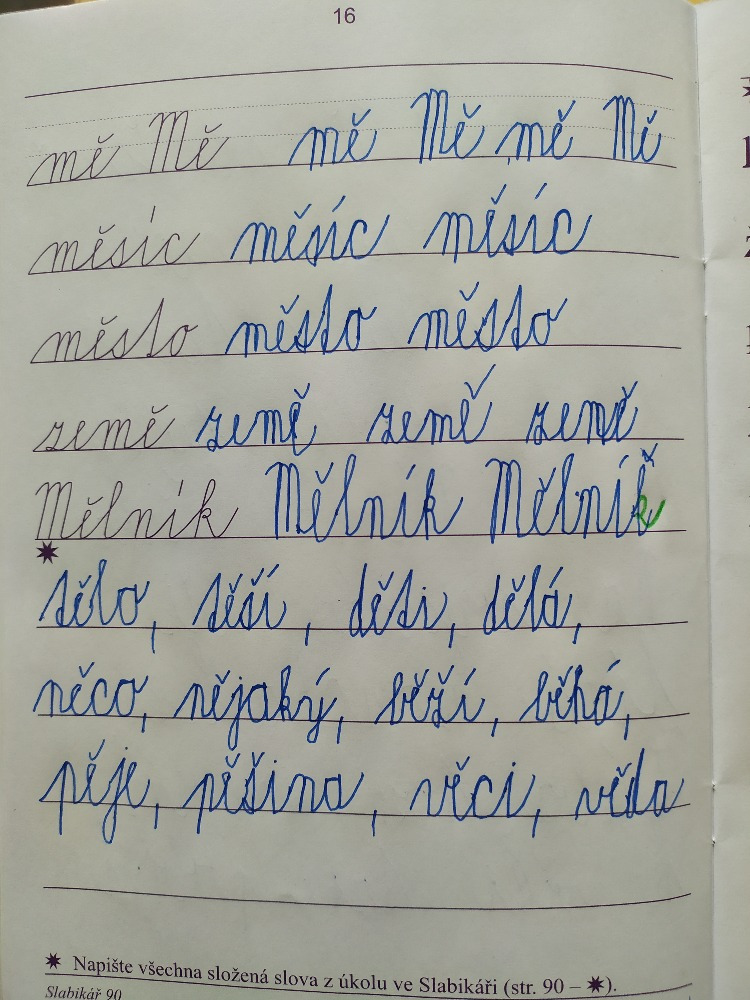 16
mě Mě mě Mě mě Mě
měsíc měsíc měsíc
město město město
země země země země
Mělník Mělník Mělník
tělo, těší, děti, dělá,
něco, nějaký, běží, běhá,
pěje, pěšina, věci, věda
✷ Napište všechna složená slova z úkolu ve Slabikáři (str. 90 – ✷).
Slabikář 90